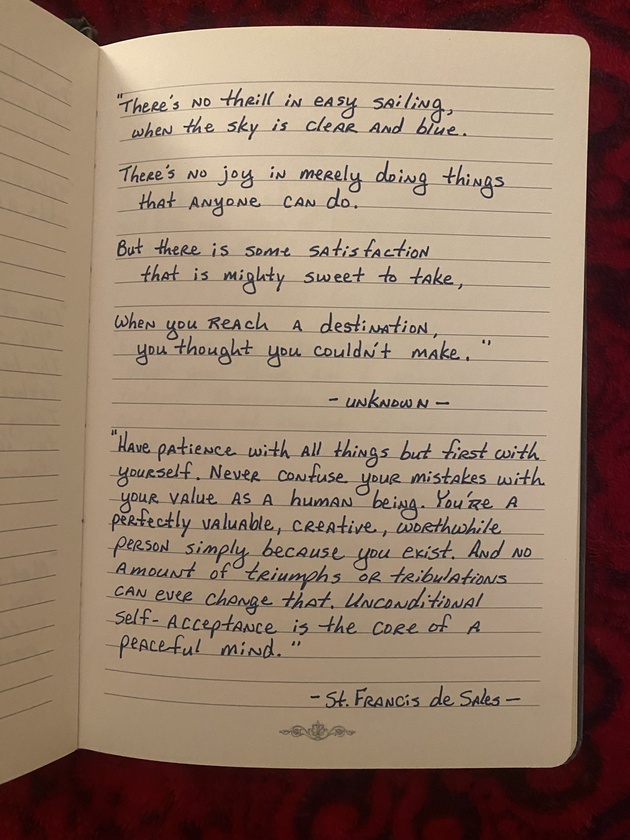 "There's no thrill in easy sailing,
when the sky is clear and blue.
There's no joy in merely doing things
that anyone can do.
But there is some satisfaction
that is mighty sweet to take,
When you reach a destination,
you thought you couldn't make."
- unknown -
"Have patience with all things but first with
yourself. Never confuse your mistakes with
your value as a human being. You're a
perfectly valuable, creative, worthwhile
person simply because you exist. And no
amount of triumphs or tribulations
can ever change that. Unconditional
self-acceptance is the core of a
peaceful mind."
- St. Francis de Sales -